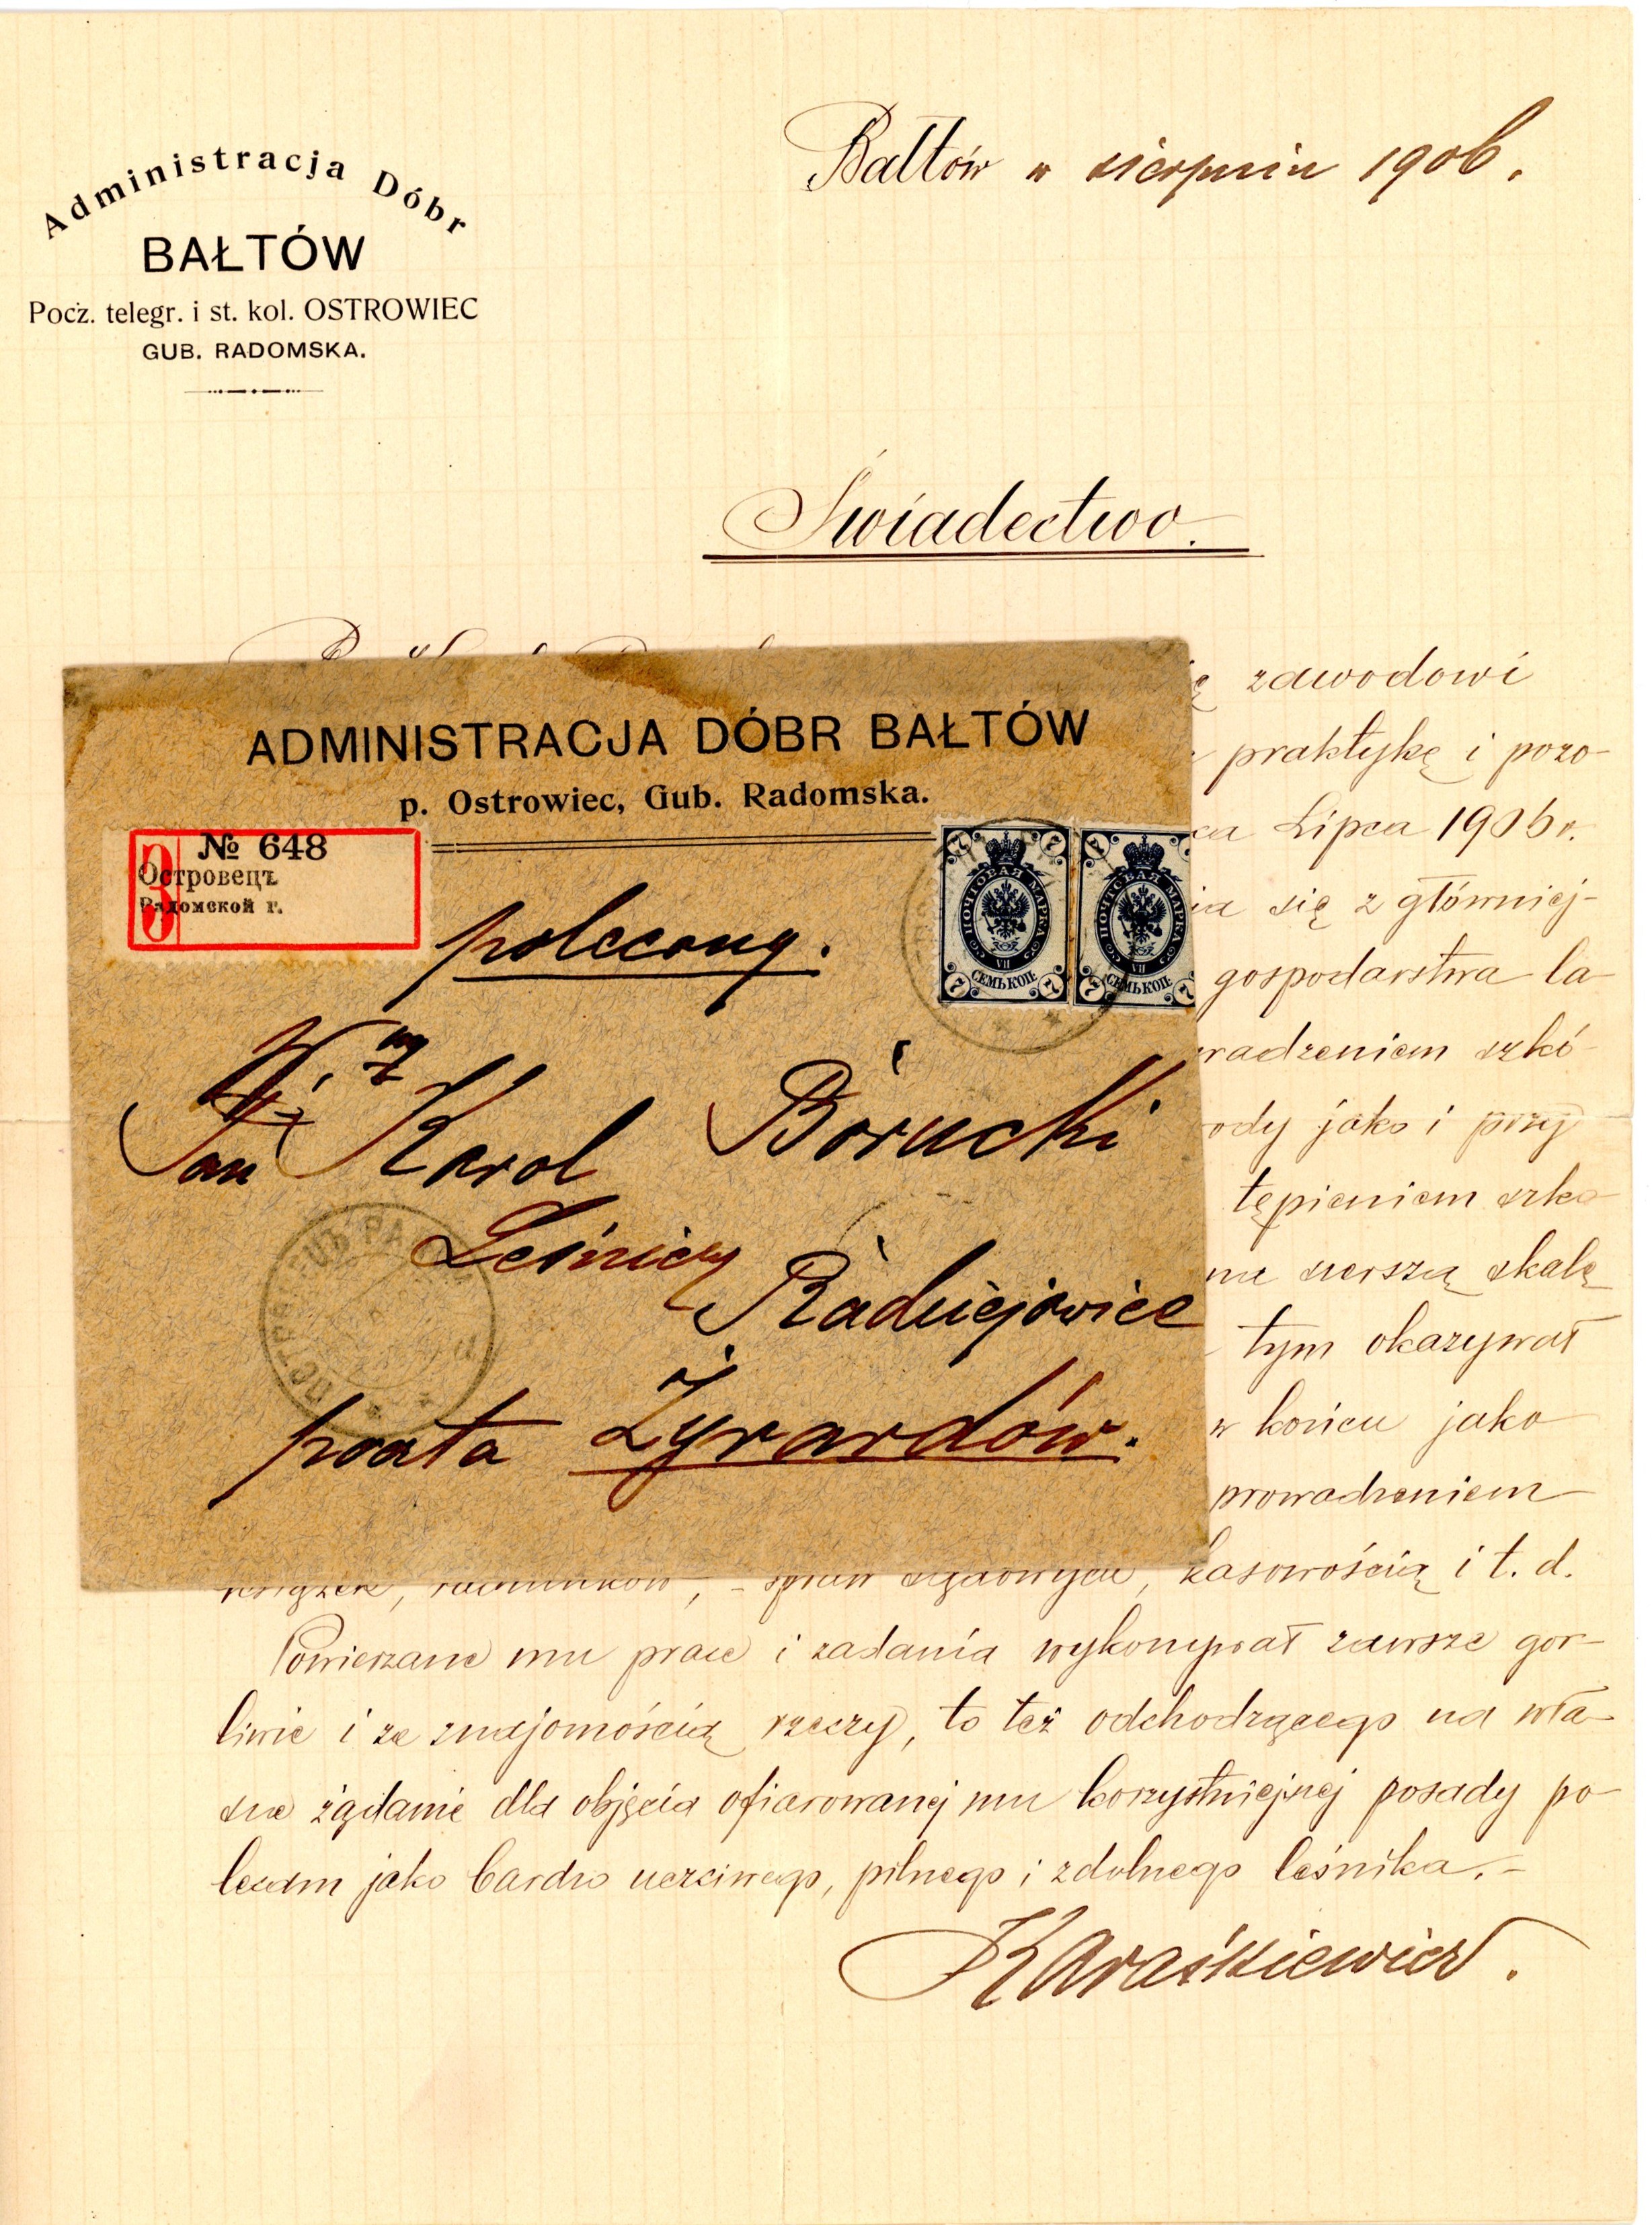 Administracja Dóbr
BAŁTÓW
Pocz. telegr. i st. kol. OSTROWIEC
GUB. RADOMSKA.
Bałtów w sierpniu 1906.
Świadectwo.
zawodowi
praktykę i pozo-
Lipca 1906 r.
się z główniej-
gospodarstwa la-
szkó-
jako i przy
tępieniem szko-
szerszą skalę
tym okazywał
w końcu jako
prowadzeniem
kasowością i t. d.
Powierzane mu prace i zadania wykonywał zawsze gor-
liwie i ze znajomością rzeczy, to też odchodzącego na wła-
sne żądanie dla objęcia ofiarowanej mu korzystniejszej posady po-
lecam jako bardzo uczciwego, pilnego i zdolnego leśnika.-
Karaśkiewicz.
ADMINISTRACJA DÓBR BAŁTÓW
p. Ostrowiec, Gub. Radomska.
№ 648
З
Островецъ
Радомской г.
polecony.
ПОЧТОВАЯ МАРКА
VII
СЕМЬ КОП.
7 7 7 7
ПОЧТОВАЯ МАРКА
VII
СЕМЬ КОП.
7 7 7
Pan Karol Borucki
Leśniczy
Radziejowice
poczta Żyrardów.